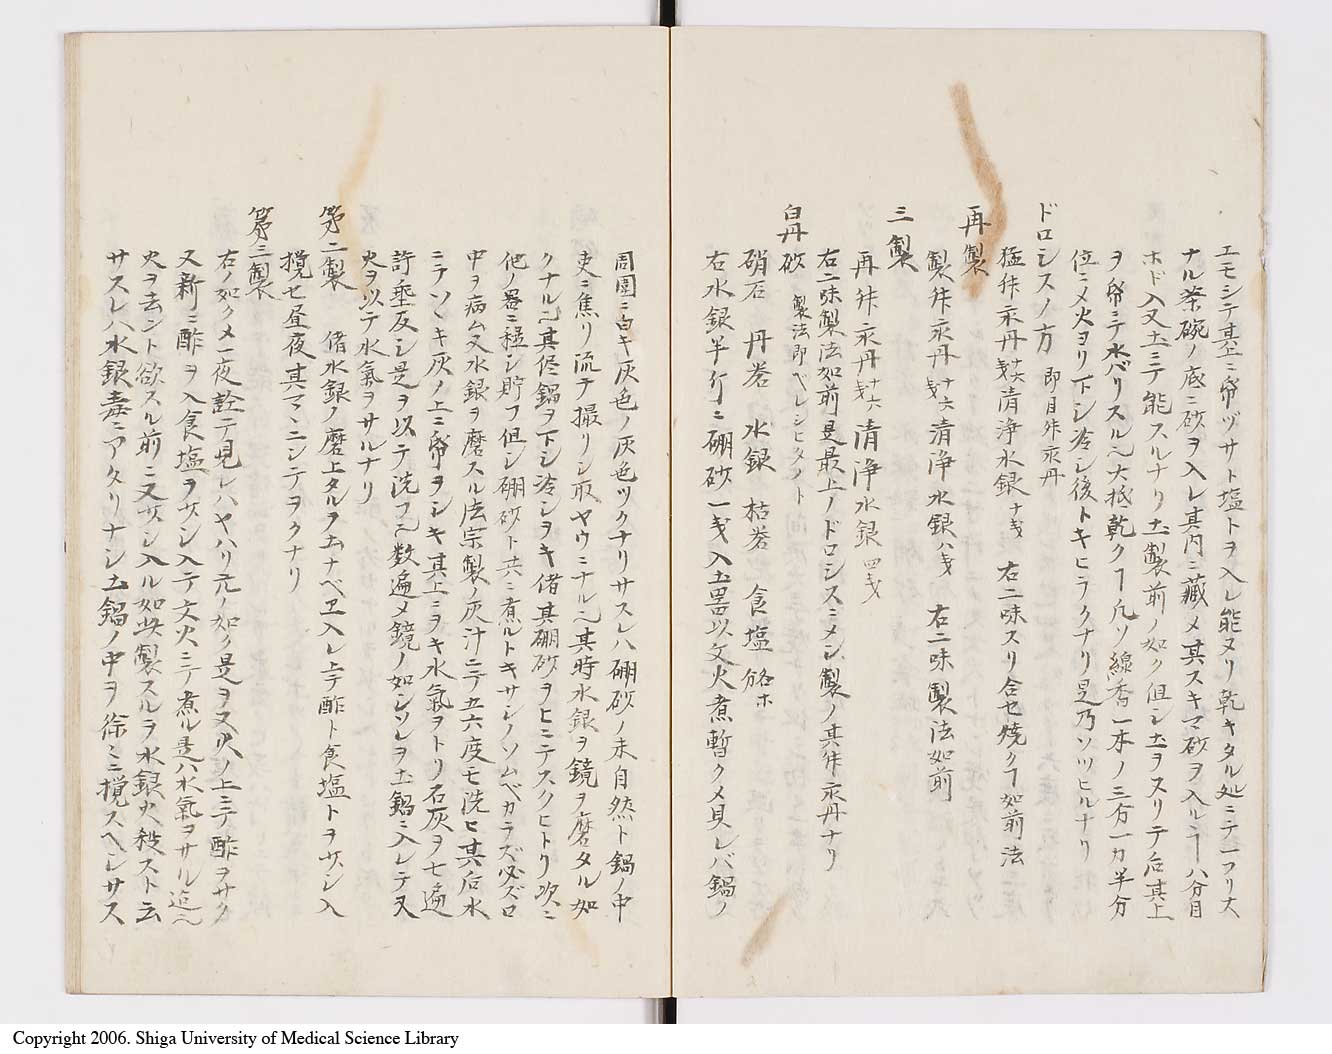 エモシテ其上ニ帋ヅサト塩トヲ入レ能ヌリ乾キタル処ニテ一フリ大
ナル茶碗ノ底ニ砂ヲ入レ其内ニ藏メ其スキマ砂ヲ入ルヿ八分目
ホド入又土ニテ能スルナリ土製前ノ如ク但シ土ヲスリテ后其上
ヲ帋ニテ水バリスル大抵乾クヿ凡ソ線香一本ノ三分一カ半分
位ニメ火ヨリ下シ冷シ後トキヒラクナリ是乃ソッヒルナリ
ドロシスノ方 即目舛汞丹
猛舛汞丹十六戔清浄水銀十戔 右二味スリ合セ焼クヿ如前法
再製
製舛汞丹十六戔清浄水銀八戔 右二味製法如前
三製
再舛汞丹十六戔清浄水銀四戔
右二味製法如前是最上ノドロシスニメ三製ノ其舛汞丹ナリ
白丹砂 製法即ペレシヒタノト同
硝石 丹礬 水銀 枯礬 食塩 各ホ
右水銀半斤ニ硼砂一戔入土器以文火煮暫クメ見レバ鍋ノ
周圍ニ白キ灰色ノ灰色ツクナリサスレハ硼砂ノ末自然ト鍋ノ中
吏ニ焦リ流テ撮リシ取ヤウニナル其時水銀ヲ鏡ヲ磨タル如
クナル其侭鍋ヲ下シ冷シヲキ偖其硼砂ヲヒニテスクヒトリ次ニ
他ノ器ニ種シ貯フ但シ硼砂ト共ニ煮ルトキサシノソムベカラズ必ズロ
中ヲ病ム又水銀ヲ磨スル法宗製ノ灰汁ニテ五六度モ洗ヒ其后水
ニテソヽキ灰ノ上ニ帋ヲシキ其上ニヲキ水氣ヲトリ石灰ヲ七遍
許垂反シ是ヲ以テ洗フ数遍メ鏡ノ如シソレヲ土鍋ニ入レテ又
火ヲ以テ水氣ヲサルナリ
第二製 偖水銀ノ磨上タルヲ土ナベヱ入レ上テ酢ト食塩トヲサシ入
攪セ昼夜其マヽニシテヲクナリ
第三製
右ノ如クメ一夜詮テ見レハヤハリ元ノ如ク是ヲ又火ノ上ニテ酢ヲサク
又新ニ酢ヲ入食塩ヲサシ入テ文火ニテ煮ル是ハ水氣ヲサル迠
火ヲ去ント欲スル前ニ又サシ入ル如此製スルヲ水銀火殺スト云
サスレハ水銀毒ニアタリナシ土鍋ノ中ヲ徐ミニ攪スヘシサス
Copyright 2006. Shiga University of Medical Science Library